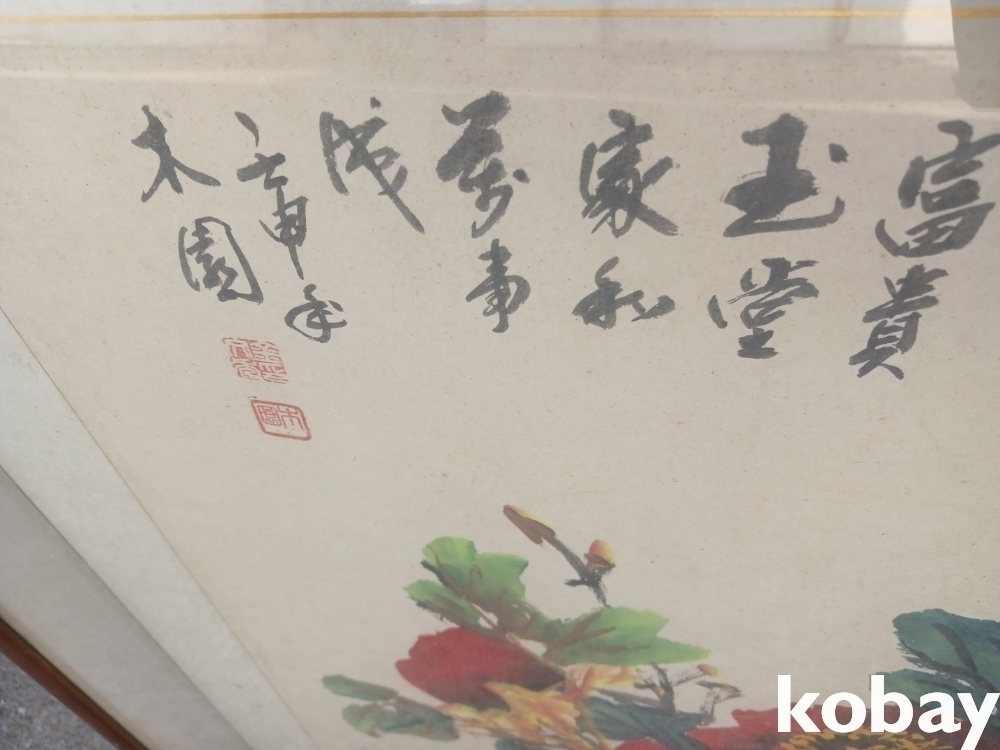 富貴
玉堂
家和
萬事
成
壬申年
木園
木園
kobay